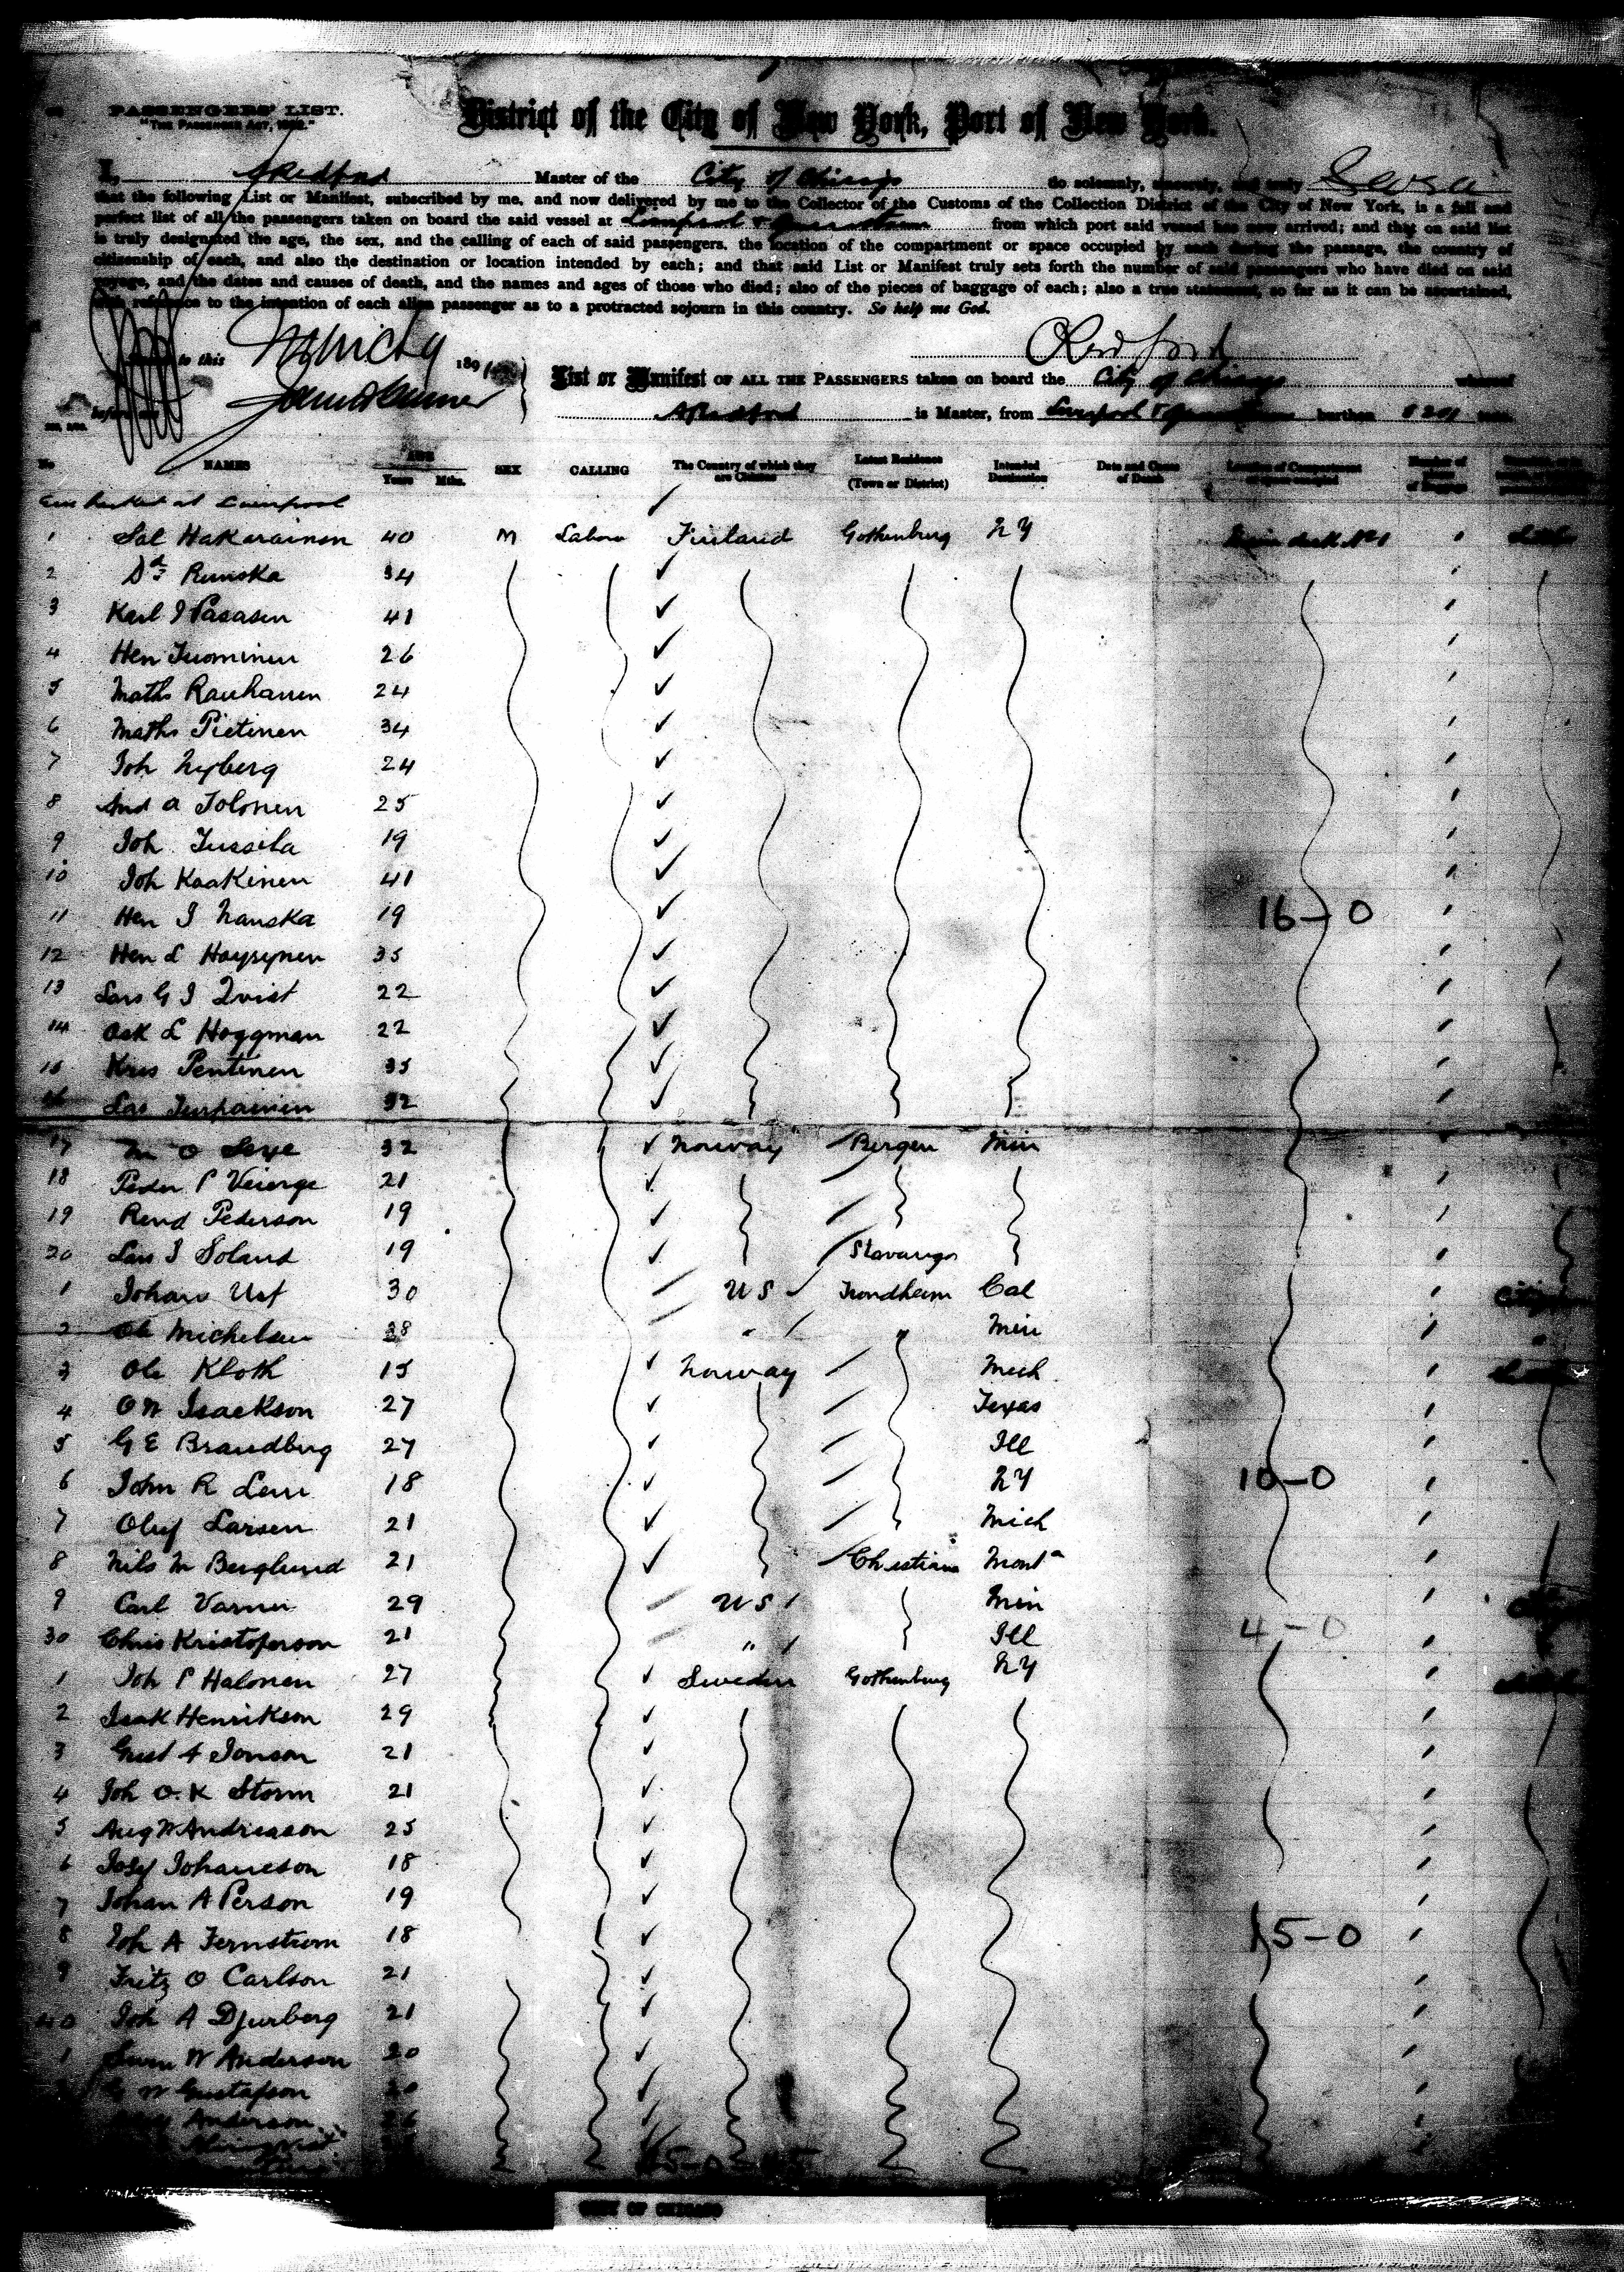 PASSENGERS' LIST.
"THE PASSENGER ACT, 1882."
District of the City of New York, Port of New York.
I, A Redford Master of the City of Chicago do solemnly, sincerely, and truly Swear
that the following List or Manifest, subscribed by me, and now delivered by me to the Collector of the Customs of the Collection District of the City of New York, is a full and
perfect list of all the passengers taken on board the said vessel at Liverpool & Queenstown from which port said vessel has now arrived; and that on said list
is truly designated the age, the sex, and the calling of each of said passengers, the location of the compartment or space occupied by each during the passage, the country of
citizenship of each, and also the destination or location intended by each; and that said List or Manifest truly sets forth the number of said passengers who have died on said
voyage, and the dates and causes of death, and the names and ages of those who died; also of the pieces of baggage of each; also a true statement, so far as it can be ascertained,
with reference to the intention of each alien passenger as to a protracted sojourn in this country. So help me God.
A Redford
to this 189
List or Manifest OF ALL THE PASSENGERS taken on board the City of Chicago whereof
A Redford is Master, from Liverpool & Queenstown burthen 5201 tons.
No NAMES AGE Years Mths. SEX CALLING The Country of which they are Citizens Latest Residence (Town or District) Intended Destination Date and Cause of Death Location of Compartment or Space occupied Number of Pieces of Baggage
Embarked at Liverpool
1 Sal Hakarainen 40 M Labour Finland Gothenburg NY Main deck No 1
2 Do Runska 34
3 Karl I Pasasen 41
4 Hen Tuominen 26
5 Maths Rauhanen 24
6 Maths Pietinen 34
7 Joh Nyberg 24
8 And A Tolonen 25
9 Joh Jussila 19
10 Joh Kaakinen 41
11 Hen I Nauska 19 16-0
12 Hen L Hoysynen 35
13 Lars G I Qvist 22
14 Osk L Hoggman 22
15 Kris Pentinen 35
16 Las Turpainen 32
17 M O Seye 32 Norway Bergen Min
18 Peder P Veierge 21
19 Rend Pederson 19
20 Lars I Soland 19 Stavanger
1 Johan Ust 30 US Trondheim Cal
2 Ole Michelsen 28 " " Min
3 Ole Kloth 15 Norway Mich
4 O N Isackson 27 Texas
5 G E Brandberg 27 Ill
6 John R Leni 18 NY 10-0
7 Oluf Larsen 21 Mich
8 Nils M Berglund 21 Christiana Monta
9 Carl Varner 29 US Min
30 Chris Kristoferson 21 " Ill 4-0
1 Joh P Halonen 27 Sweden Gothenburg NY
2 Isak Henrikson 29
3 Gust A Jonson 21
4 Joh O. K Storm 21
5 Aug W Andreason 25
6 Josef Johaneson 18
7 Johan A Person 19
8 Joh A Fernstrom 18 15-0
9 Fritz O Carlson 21
40 Joh A Djurberg 21
1 Sven W Anderson 20
G W Gustafson 20
Anderson 26
CITY OF CHICAGO